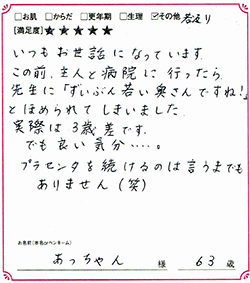 □お肌 □からだ □更年期 □生理 ☑その他 若返り
[満足度]★★★★★
いつもお世話になっています。
この前、主人と病院に行ったら、
先生に「ずいぶん若い奥さんですね!」
とほめられてしまいました。
実際は3歳差です。
でも良い気分‥‥。
プラセンタを続けるのは言うまでも
ありません(笑)
お名前(本名orペンネーム)
あっちゃん 様 63 歳